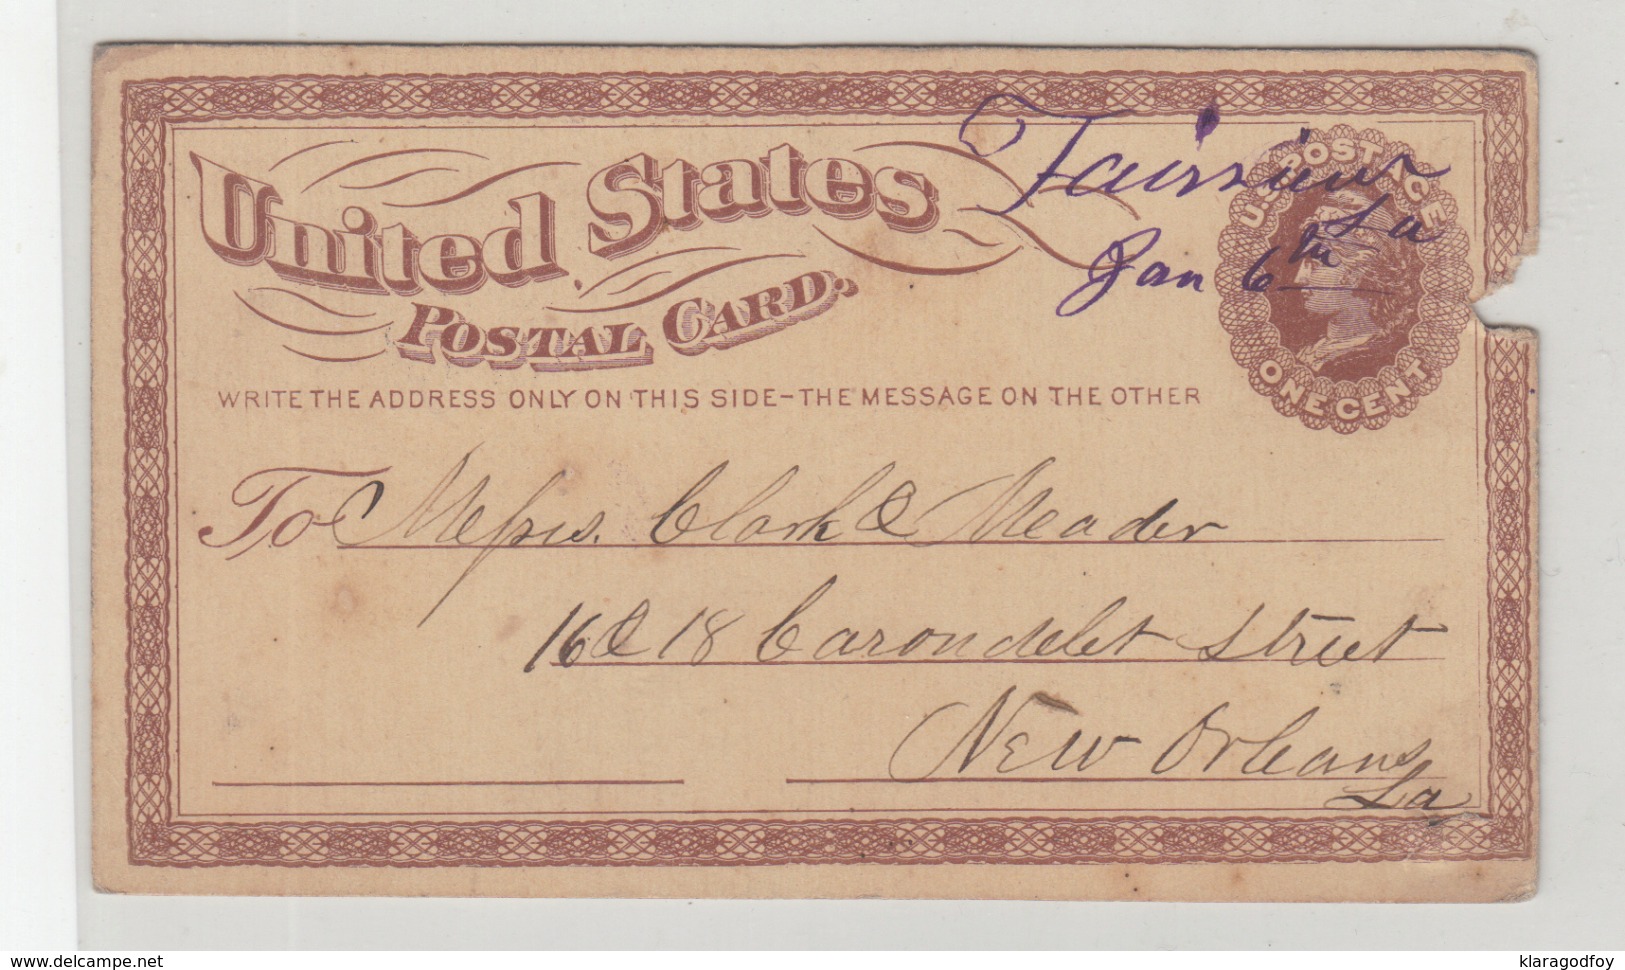 United States
Postal Card.
WRITE THE ADDRESS ONLY ON THIS SIDE-THE MESSAGE ON THE OTHER
Fairview
La
Jan 6th
U.S. POSTAGE
ONE CENT
To Messrs. Clark & Meader
16 & 18 Carondelet Street
New Orleans
La
www.delcampe.net
klaragodfoy